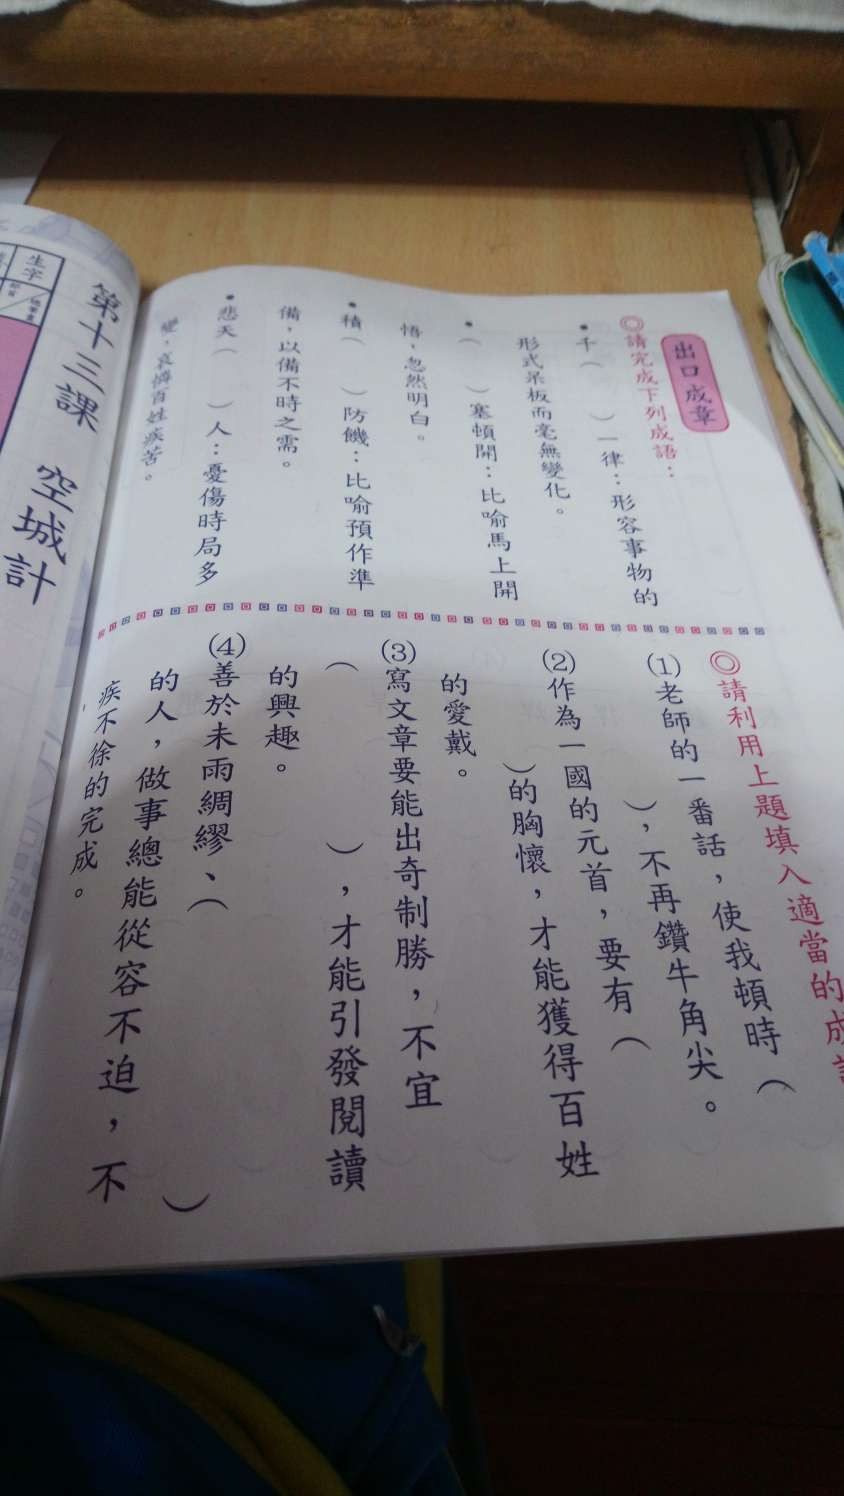 出口成章
◎請完成下列成語：
•千（　　）一律：形容事物的
形式呆板而毫無變化。
•（　　）塞頓開：比喻馬上開
悟，忽然明白。
•積（　　）防饑：比喻預作準
備，以備不時之需。
•悲天（　　）人：憂傷時局多
變，哀憐百姓疾苦。
◎請利用上題填入適當的成
(1)老師的一番話，使我頓時（
　　），不再鑽牛角尖。
(2)作為一國的元首，要有（
　　）的胸懷，才能獲得百姓
的愛戴。
(3)寫文章要能出奇制勝，不宜
（　　），才能引發閱讀
的興趣。
(4)善於未雨綢繆、（　　）
的人，做事總能從容不迫，不
疾不徐的完成。
第十三課　空城計
生字